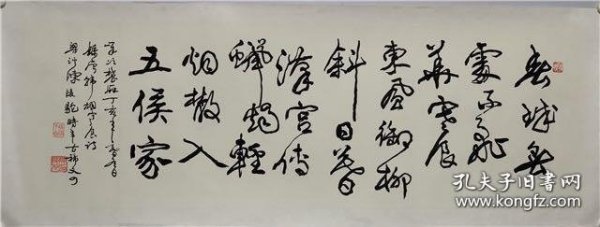 春城無
處不飛
華寒食
東風御柳
斜日暮
漢宮傳
蠟燭輕
烟散入
五侯家
丁亥年
唐韓翃寒食詩
孔夫子旧书网
www.kongfz.com